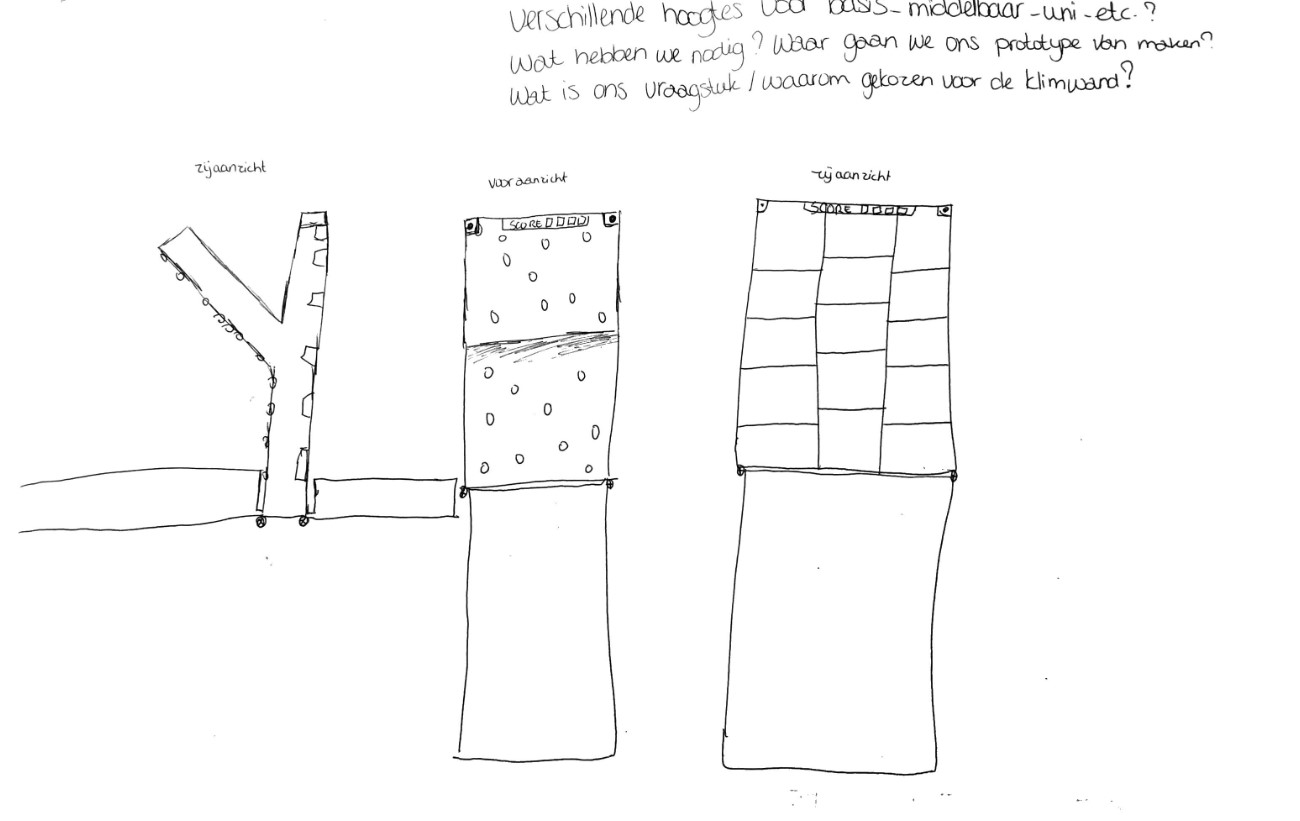 Verschillende hoogtes voor basis-middelbaar-uni-etc.?
Wat hebben we nodig? Waar gaan we ons prototype van maken?
Wat is ons vraagstuk/waarom gekozen voor de klimwand?
zijaanzicht
vooraanzicht
zijaanzicht
SCORE
SCORE